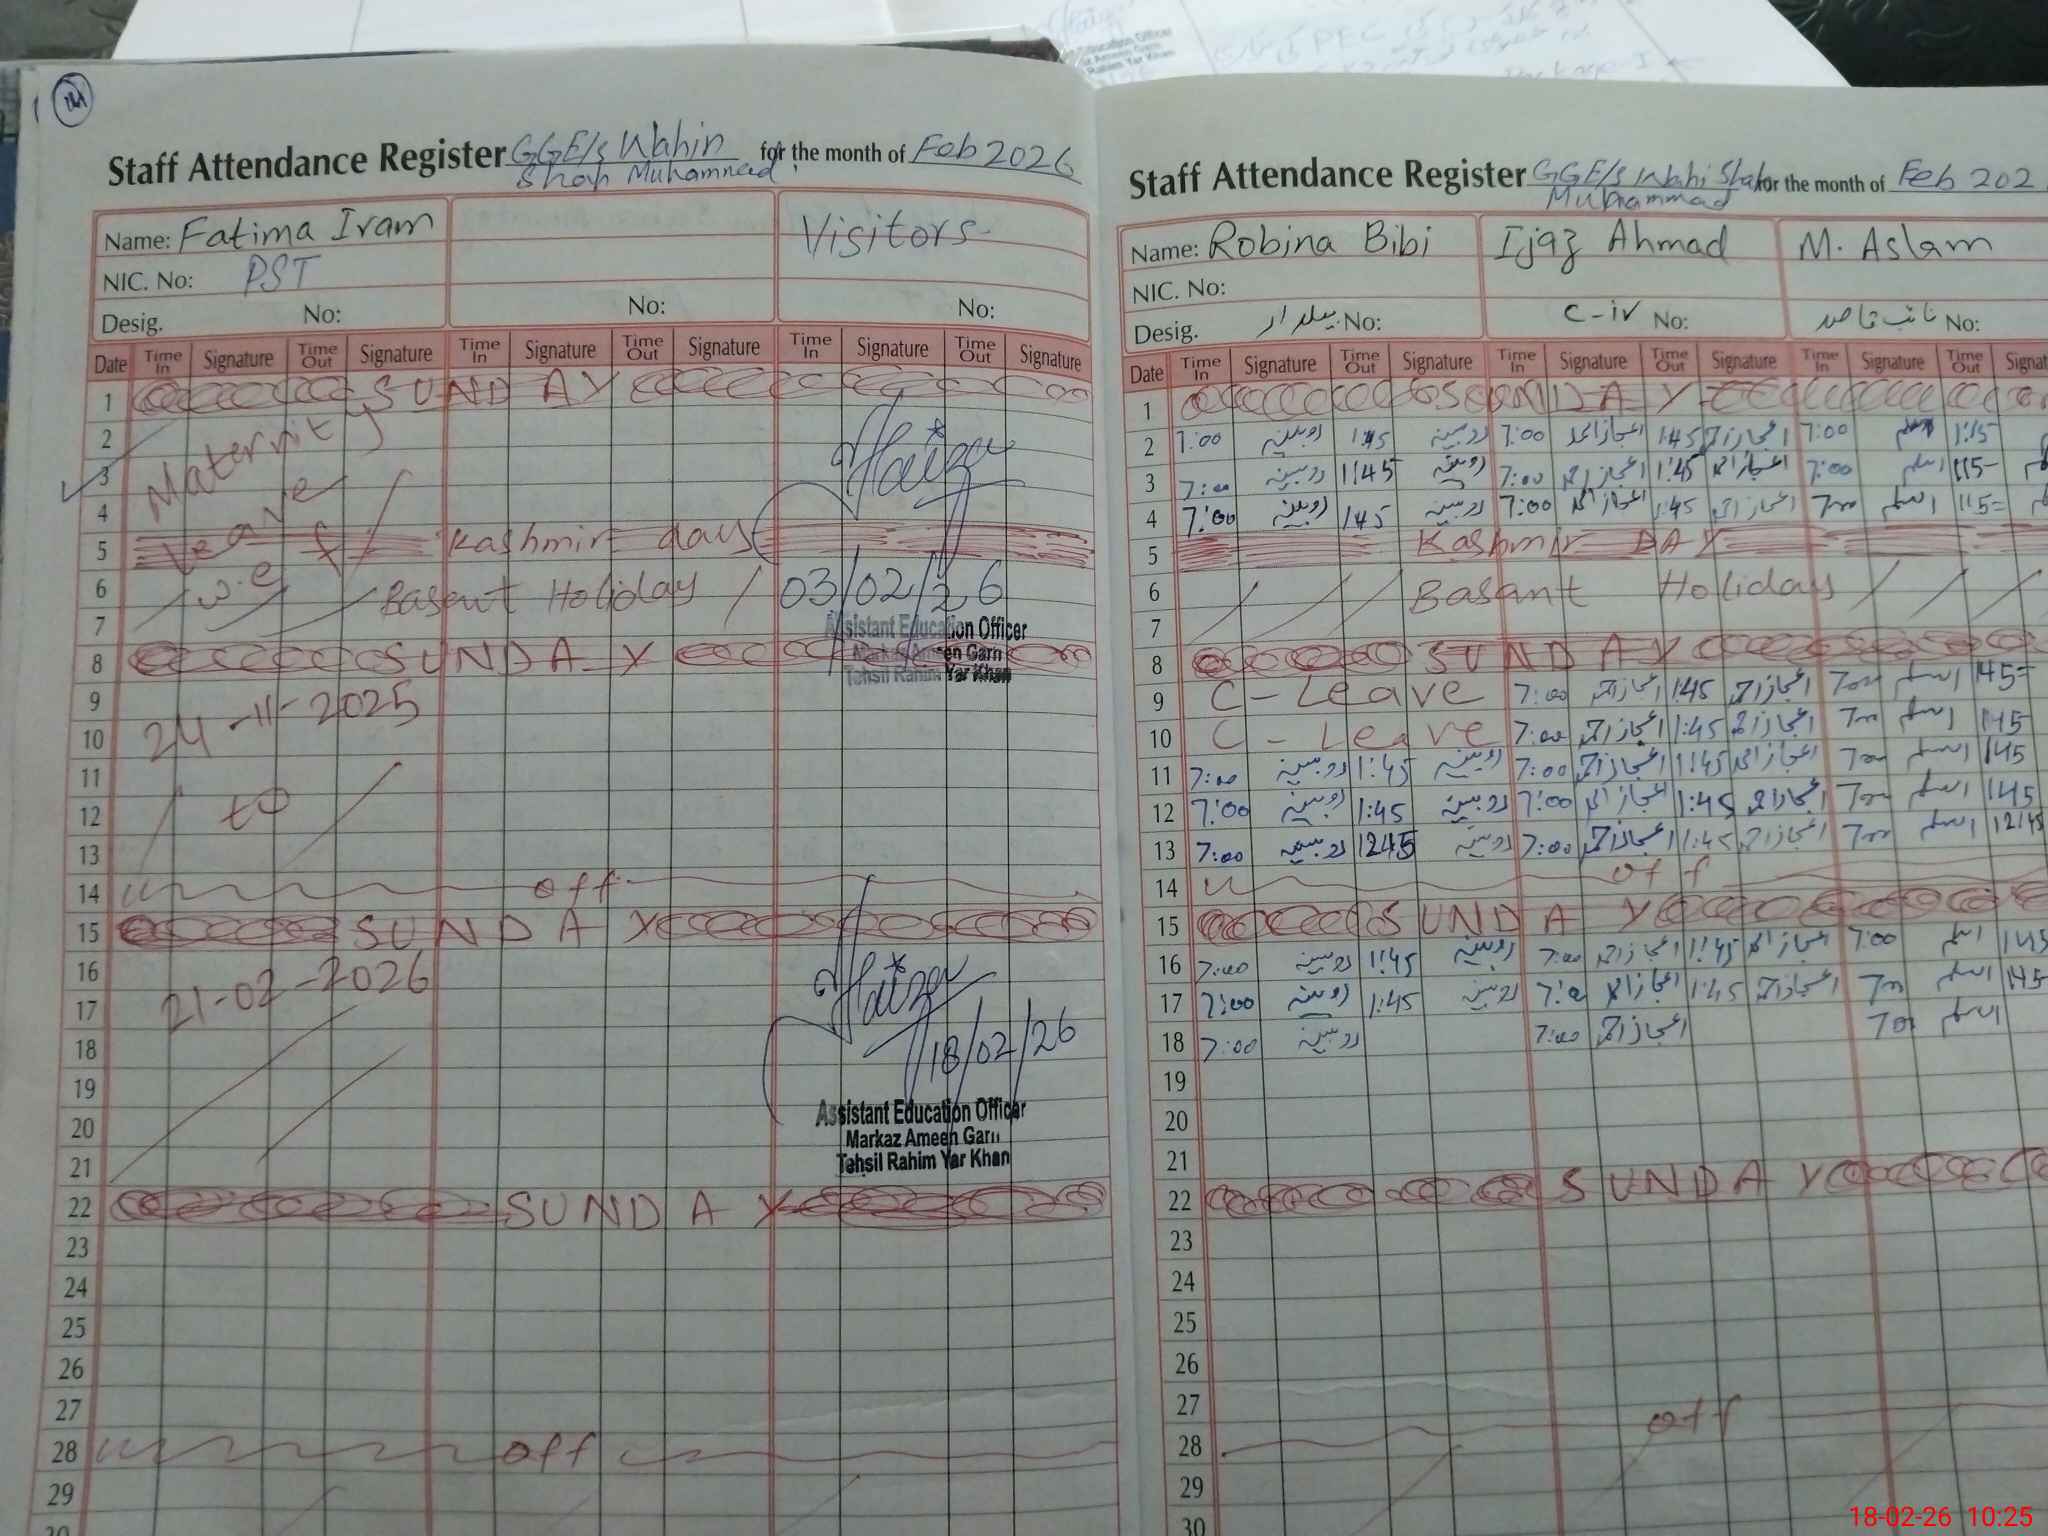 Education Officer
Rahim Yar Khan
PEC
Staff Attendance Register GGE/s Wahin Shah Muhammad for the month of Feb 2026
Name: Fatima Iram Visitors
NIC. No: PST
Desig. No: No: No:
Date Time In Signature Time Out Signature Time In Signature Time Out Signature Time In Signature Time Out Signature
1 SUNDAY
2 Maternity
3
4 Leave
5 Kashmir day
6 w.e.f Basant Holiday 03/02/26
7 Assistant Education Officer
8 SUNDAY
Markaz Ameen Garh
Tehsil Rahim Yar Khan
9 24-11-2025
10
11
12 to
13
14 off
15 SUNDAY
16 21-02-2026
17
18 18/02/26
19
20 Assistant Education Officer
Markaz Ameen Garh
21 Tehsil Rahim Yar Khan
22 SUNDAY
23
24
25
26
27
28 off
29
30
Staff Attendance Register GGE/s Wahi Shah Muhammad for the month of Feb 202
Name: Robina Bibi Ijaz Ahmad M. Aslam
NIC. No:
Desig. بیلدار No: C-iv No: نائب قاصد No:
Date Time In Signature Time Out Signature Time In Signature Time Out Signature Time In Signature Time Out Signat
1 SUNDAY
2 7:00 روبینہ 1:45 روبینہ 7:00 اعجاز احمد 1:45 اعجاز احمد 7:00 اسلم 1:15
3 7:00 روبینہ 1:45 روبینہ 7:00 اعجاز احمد 1:45 اعجاز احمد 7:00 اسلم 115
4 7:00 روبینہ 145 روبینہ 7:00 اعجاز احمد 1:45 اعجاز احمد 700 اسلم 115
5 Kashmir DAY
6 Basant Holiday
7
8 SUNDAY
9 C-Leave 7:00 اعجاز احمد 1:45 اعجاز احمد 700 اسلم 145
10 C-Leave 7:00 اعجاز احمد 1:45 اعجاز احمد 700 اسلم 145
11 7:00 روبینہ 1:45 روبینہ 7:00 اعجاز احمد 1:45 اعجاز احمد 700 اسلم 145
12 7:00 روبینہ 1:45 روبینہ 7:00 اعجاز احمد 1:45 اعجاز احمد 700 اسلم 145
13 7:00 روبینہ 1245 روبینہ 7:00 اعجاز احمد 1:45 اعجاز احمد 700 اسلم 1245
14 off
15 SUNDAY
16 7:00 روبینہ 1:45 روبینہ 7:00 اعجاز احمد 1:45 اعجاز احمد 7:00 اسلم 145
17 7:00 روبینہ 1:45 روبینہ 7:00 اعجاز احمد 1:45 اعجاز احمد 700 اسلم 145
18 7:00 روبینہ 7:00 اعجاز احمد 700 اسلم
19
20
21
22 SUNDAY
23
24
25
26
27
28 off
29
30
18-02-26 10:25